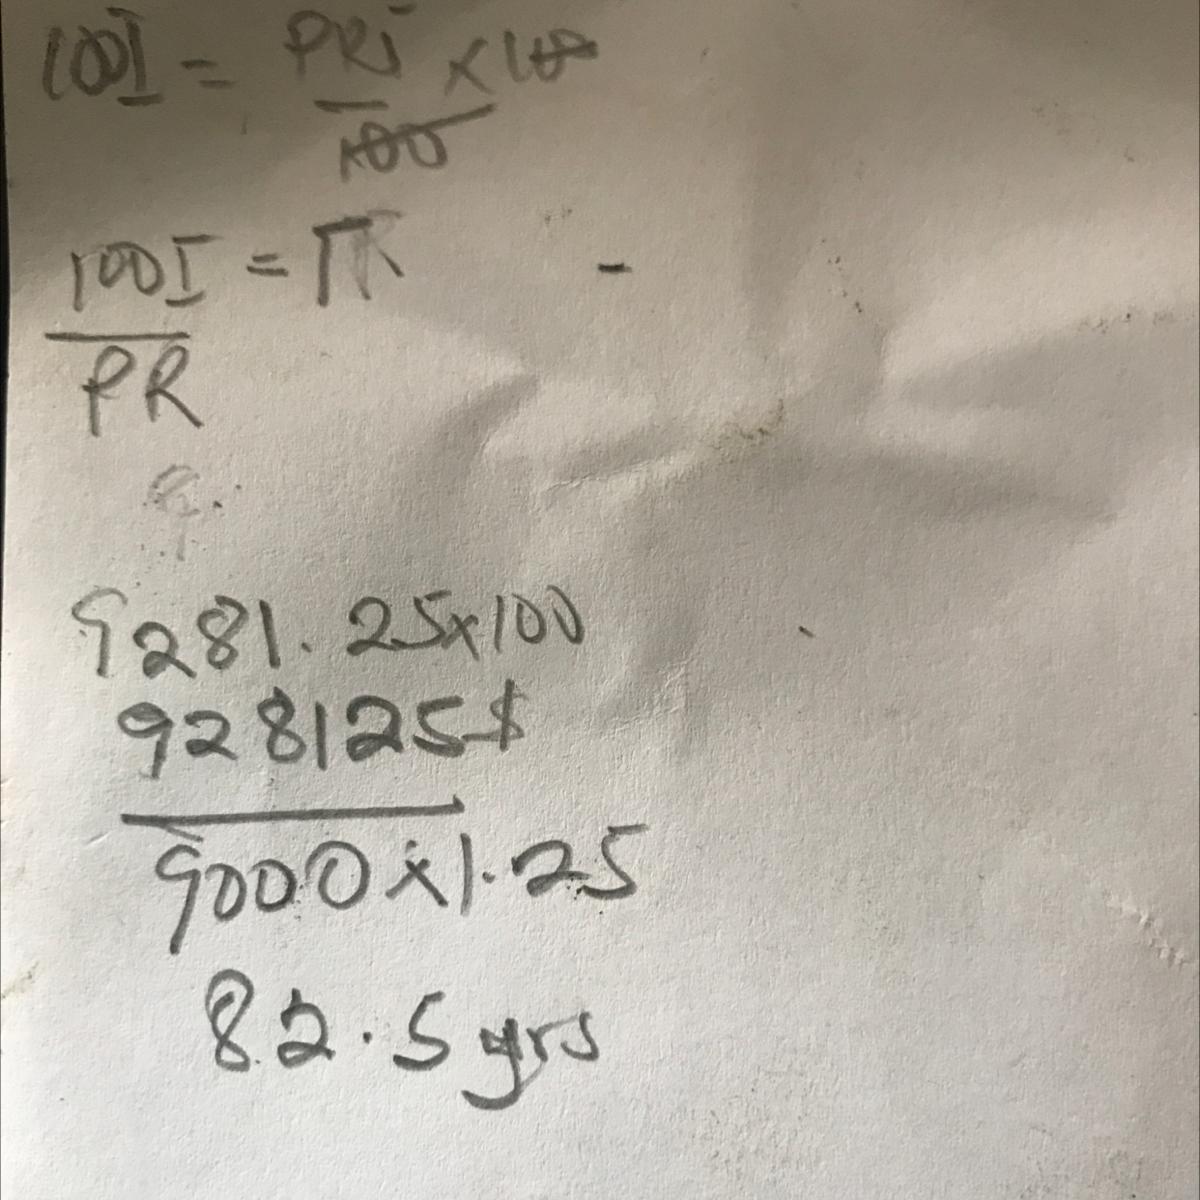 100I = PRT × 100
100
100I = T
PR
9281.25×100
928125
9000×1.25
82.5 yrs